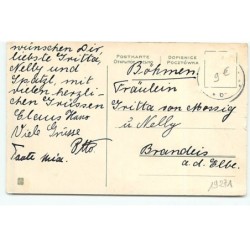 wünschen Dir,
liebste Gritta,
Nelly und
Spatzl, mit
vielen herzli-
chen Grüssen
Claus Hans
Viele Grüsse
Otto
Tante Mia.
POSTKARTE
DOPISNICE
POCZTÓWKA
9 €
Böhmen
Fräulein
Gritta von Mossig
u Nelly
Brandeis
a.d. Elbe